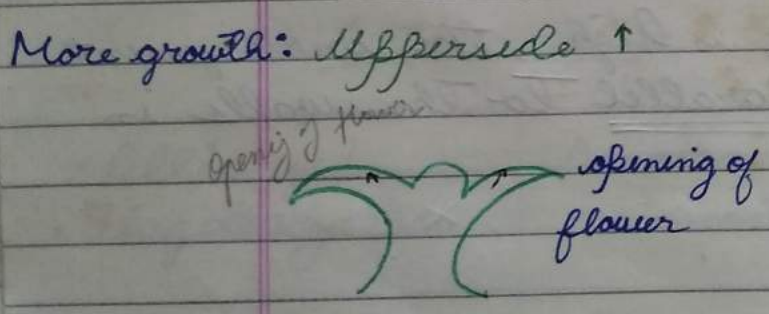 More growth: Upperside ↑
opening of flower
opening of
flower